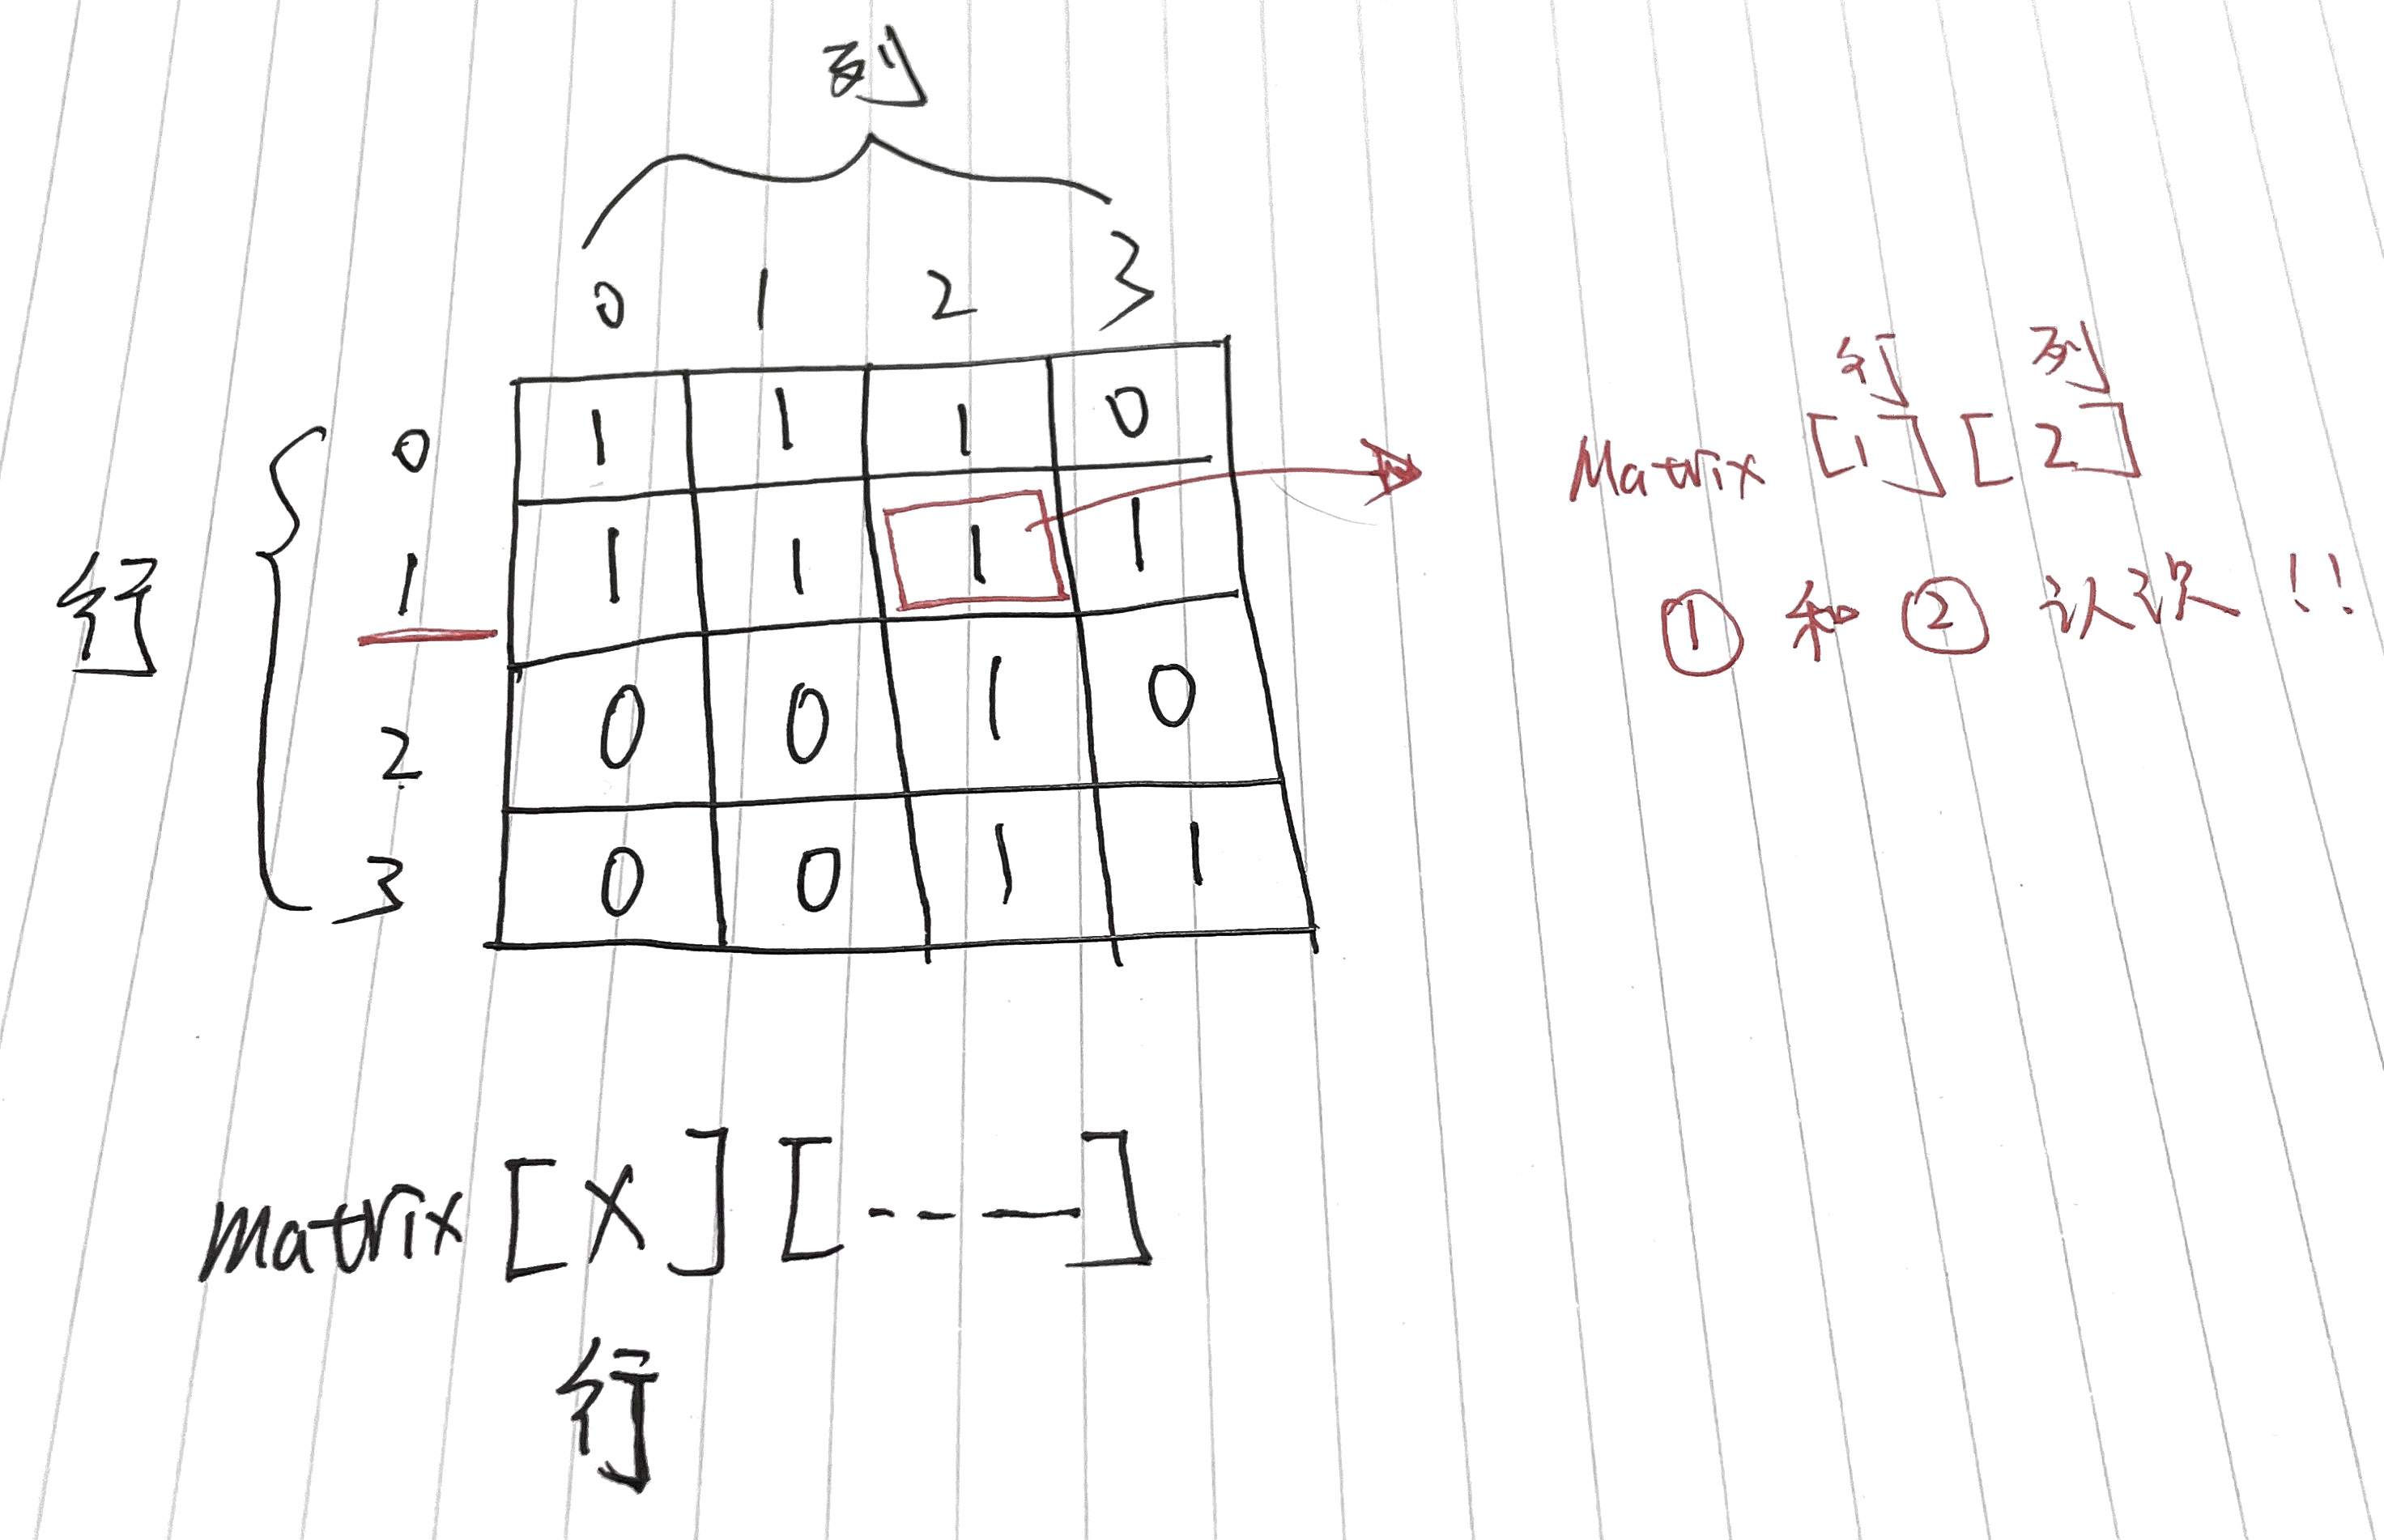 列
0 1 2 3
0 1 1 1 0
行 1 1 1 1 1
2 0 0 1 0
3 0 0 1 1
行 列
Matrix [1] [2]
① 和 ② 认识 !!
Matrix [X] [-----]
行